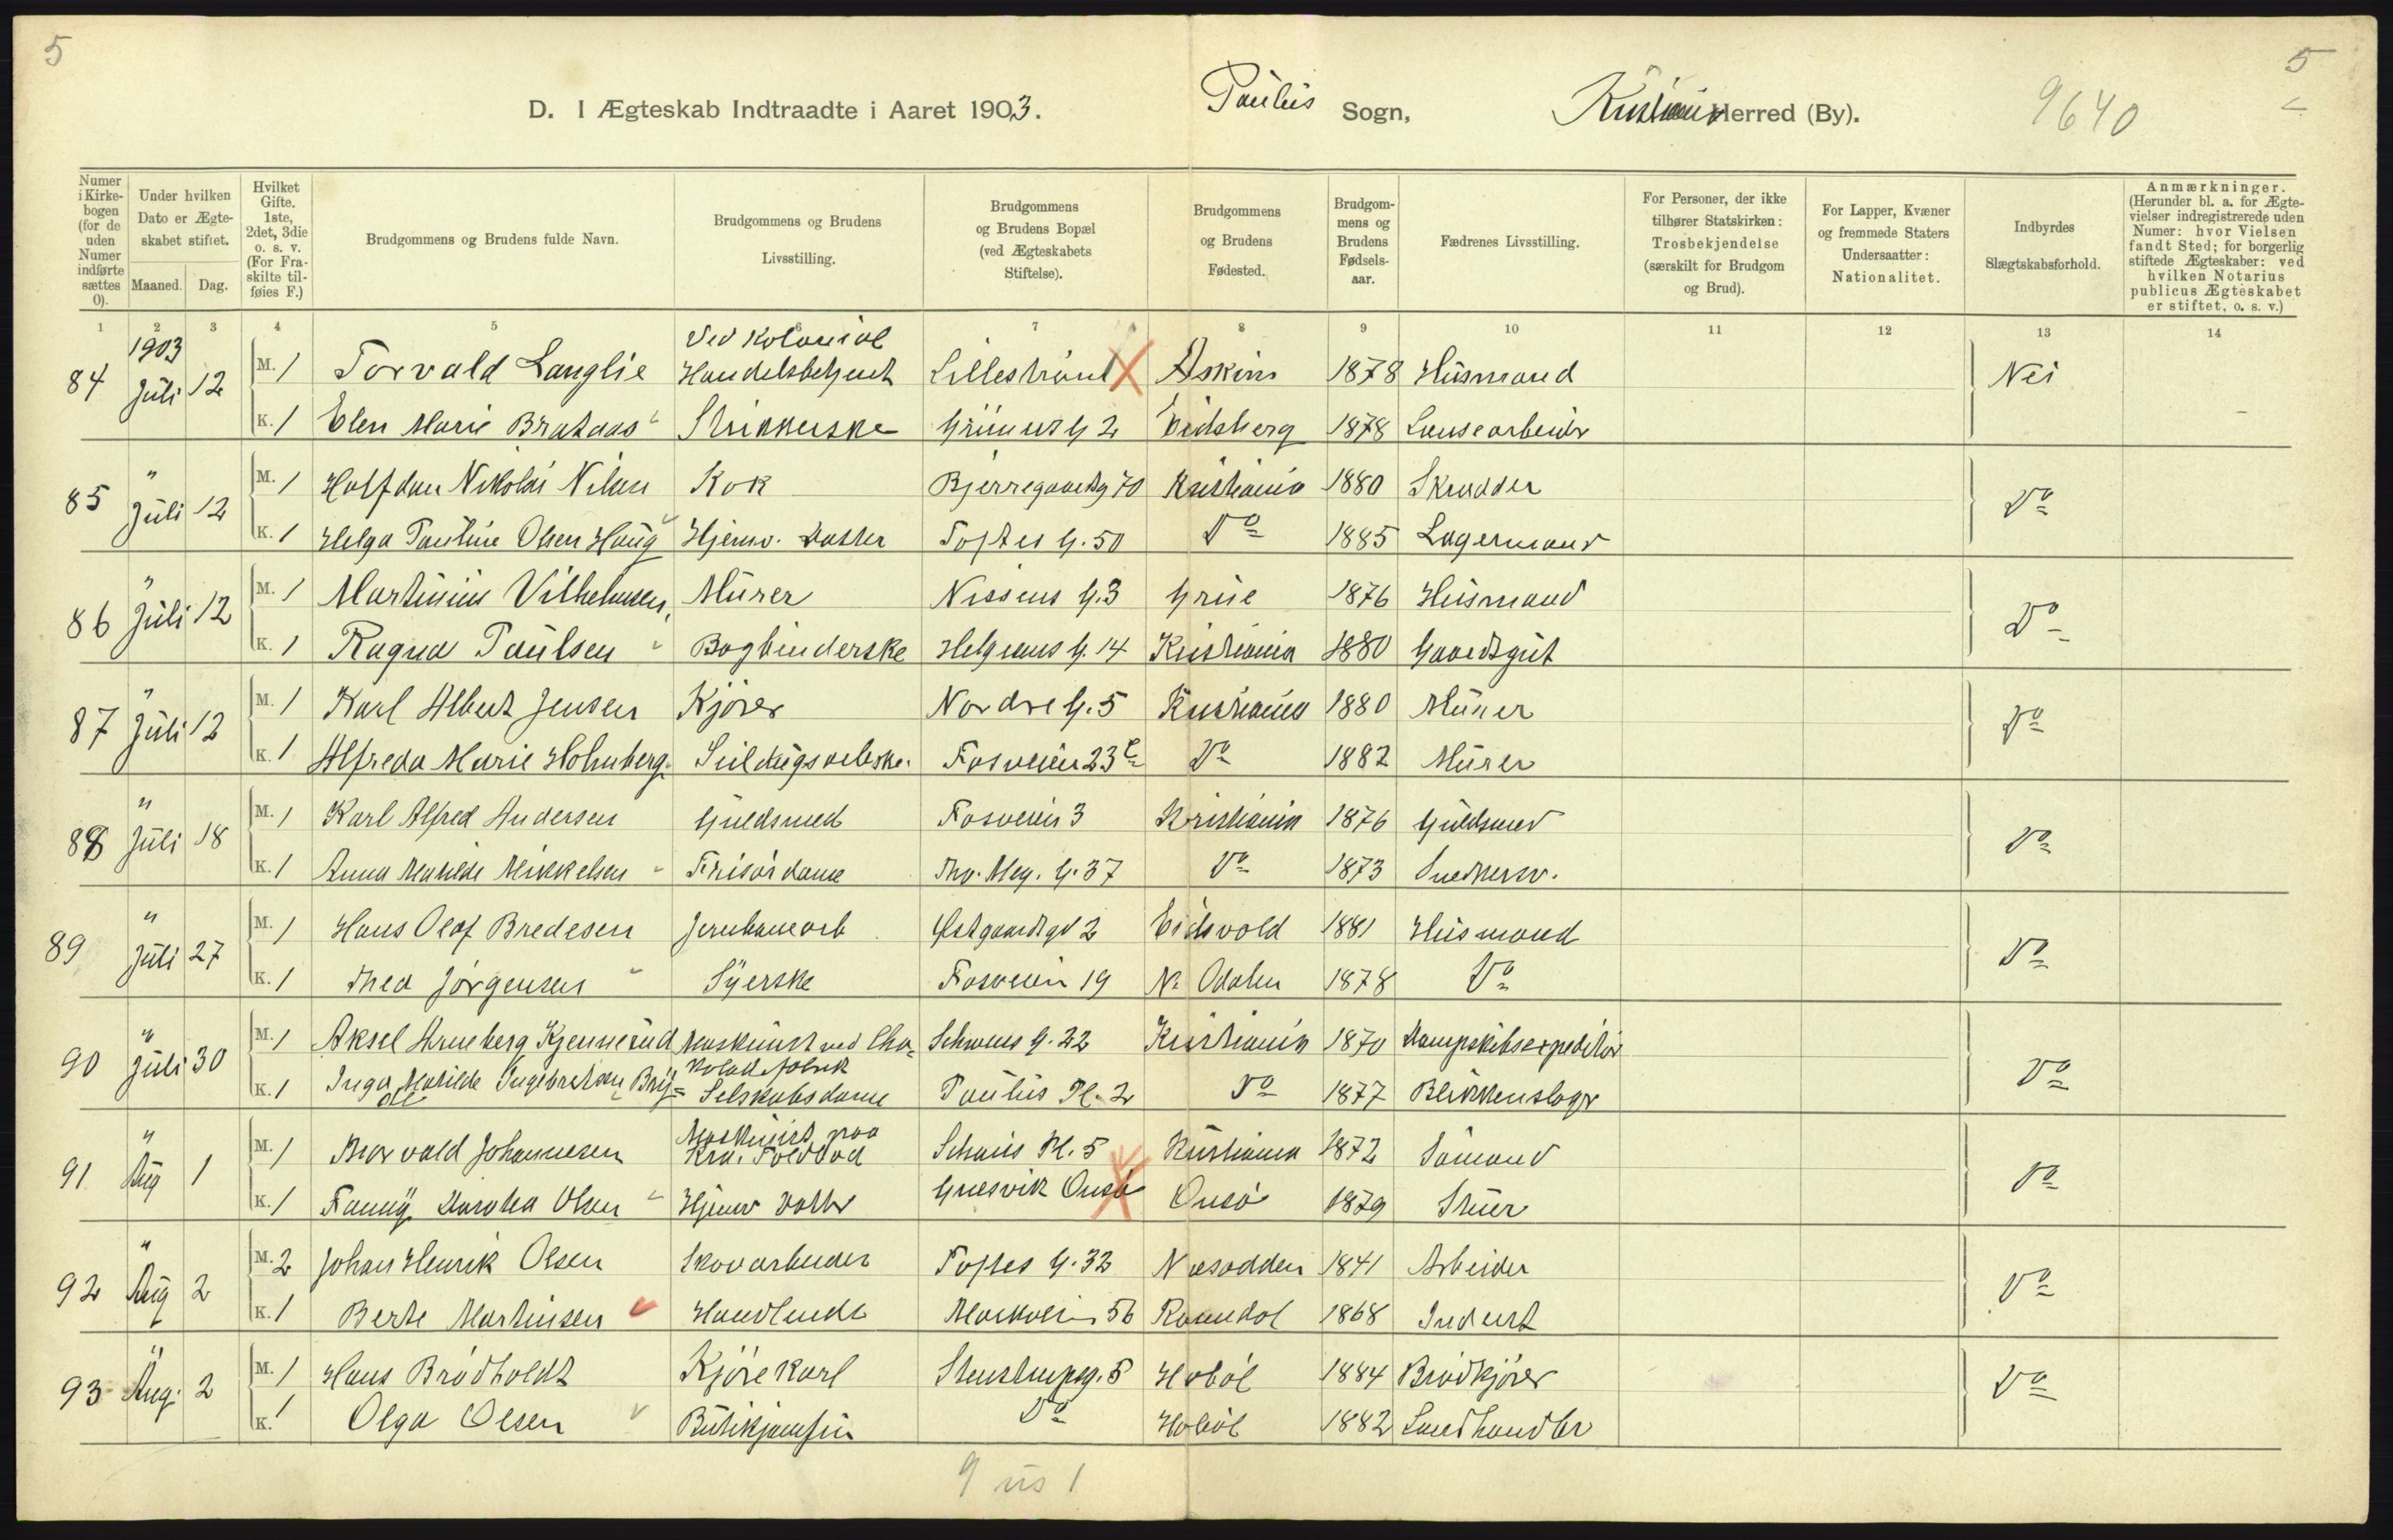 5
5
D. I Ægteskab Indtraadte i Aaret 1903. Paulus Sogn, Kristiania Herred (By). 9640
Numer i Kirkebogen (for de uden Numer indførte sættes 0).
Under hvilken Dato er Ægteskabet stiftet.
Maaned. Dag.
Hvilket Gifte. 1ste, 2det, 3die o. s. v. (For Fraskilte tilføies F.)
Brudgommens og Brudens fulde Navn.
Brudgommens og Brudens Livsstilling.
Brudgommens og Brudens Bopæl (ved Ægteskabets Stiftelse).
Brudgommens og Brudens Fødested.
Brudgommens og Brudens Fødselsaar.
Fædrenes Livsstilling.
For Personer, der ikke tilhører Statskirken: Trosbekjendelse (særskilt for Brudgom og Brud).
For Lapper, Kvæner og fremmede Staters Undersaatter: Nationalitet.
Indbyrdes Slægtskabsforhold.
Anmærkninger. (Herunder bl. a. for Ægtevielser indregistrerede uden Numer: hvor Vielsen fandt Sted; for borgerlig stiftede Ægteskaber: ved hvilken Notarius publicus Ægteskabet er stiftet, o. s. v.)
1 2 3 4 5 6 7 8 9 10 11 12 13 14
1903
84 Juli 12 M. 1 Torvald Langlie Ved Kolonial Handelsbetjent Lillestrøm Askim 1878 Husmand Nei
K. 1 Elen Marie Brataas Strikkerske Grüners G 2 Eidsberg 1878 Løusearbeider
85 " Juli 12 M. 1 Halfdan Nikolai Nilsen Kok Bjerregaardsg 70 Kristiania 1880 Skrædder Do
K. 1 Helga Pauline Olsen Haug Hjemv. Datter Toftes G. 50 Do 1885 Lagermand
86 " Juli 12 M. 1 Martinius Vilhelmsen Murer Nissens G. 3 Grue 1876 Husmand Do
K. 1 Ragna Paulsen Bogbinderske Helgesens G. 14 Kristiania 1880 Gaardsgut
87 " Juli 12 M. 1 Karl Albert Jensen Kjører Nordre G. 5 Kristiania 1880 Murer Do
K. 1 Alfreda Marie Holmberg Fosveien 23 Do 1882 Murer
88 " Juli 18 M. 1 Karl Alfred Andersen Guldsmed Fosveien 3 Kristiania 1876 Guldsmed Do
K. 1 Anna Matilde Mikkelsen Frisørdame Thv. Mey. G. 37 Do 1873 Snedkersv.
89 " Juli 27 M. 1 Hans Olaf Bredesen Jernbanearb Østgaardsgd 2 Eidsvold 1881 Husmand Do
K. 1 Thea Jørgensen Syerske Fosveien 19 N. Odalen 1878 Do
90 " Juli 30 M. 1 Aksel Arneberg Kjennerud Maskinist ved Chokoladefabrik Schwens G. 22 Kristiania 1870 Dampskibsexpeditør Do
K. 1 Inga Matilde Ingebretsen Selskabsdame Paulus Pl. 2 Do 1877 Blikkenslager
91 " Aug 1 M. 1 Borvald Johannesen Maskinist paa Kra. Toldbod Schous Pl. 5 Kristiania 1872 Sømand Do
K. 1 Fanny Dorothea Olsen Hjemv Datter Gressvik Onsø Onsø 1879 Stuer
92 " Aug 2 M. 2 Johan Henrik Olsen Skovarbeider Toftes G. 32 Næsodden 1841 Arbeider Do
K. 1 Berte Martinsen Handlende Markvein 56 Romedal 1868 Inderst
93 " Aug. 2 M. 1 Hans Brødholdt Kjørekarl Stenstrupsg. 5 Hobøl 1884 Brødkjører Do
K. 1 Olga Olsen Butikjomfru Do Hobøl 1882 Landhandler
9 us 1